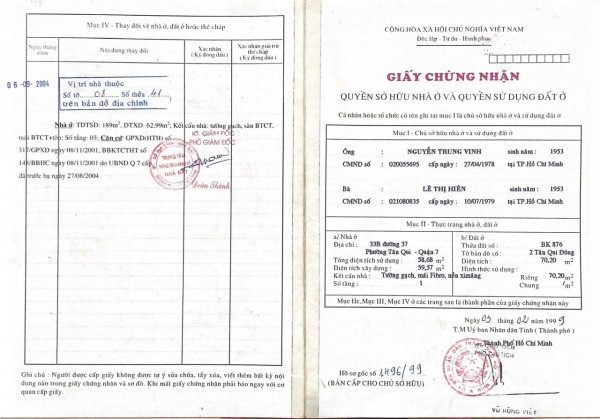 Mục IV - Thay đổi về nhà ở, đất ở hoặc thế chấp
Ngày tháng năm
Nội dung thay đổi
Xác nhận (Ký đóng dấu)
Xác nhận giải trừ thế chấp (Ký đóng dấu)
06-09-2004
Vị trí nhà thuộc
Số tờ 03 Số thửa 41
trên bản đồ địa chính
Nhà ở: TDTSD: 189m², DTXD: 62,99m², Kết cấu nhà: tường gạch, sàn BTCT,
mái BTCT+tôn; Số tầng: 03; Căn cứ: GPXD(HTH) số
317/GPXD ngày 08/11/2001, BBKTCTHT số
148/BBHC ngày 08/11/2001 do UBND Q.7 cấp
đã trước bạ ngày 27/08/2004.
KT. GIÁM ĐỐC
PHÓ GIÁM ĐỐC
TRUNG TÂM
NHÀ ĐẤT
Ghi chú : Người được cấp giấy không được tự ý sửa chữa, tẩy xóa, viết thêm bất kỳ nội
dung nào trong giấy chứng nhận và sơ đồ. Khi mất giấy chứng nhận phải báo ngay với cơ
quan cấp giấy.
CỘNG HÒA XÃ HỘI CHỦ NGHĨA VIỆT NAM
Độc lập - Tự do - Hạnh phúc
GIẤY CHỨNG NHẬN
QUYỀN SỞ HỮU NHÀ Ở VÀ QUYỀN SỬ DỤNG ĐẤT Ở
Cá nhân hoặc tổ chức có tên ghi tại mục I là chủ sở hữu nhà ở và sử dụng đất ở
Mục I - Chủ sở hữu nhà ở và sử dụng đất ở
Ông NGUYỄN TRUNG VINH sinh năm : 1953
CMND số : 020055695 cấp ngày : 27/04/1978 tại TP.Hồ Chí Minh
Bà LÊ THỊ HIỀN sinh năm : 1953
CMND số : 021080835 cấp ngày : 10/07/1979 tại TP.Hồ Chí Minh
Mục II - Thực trạng nhà ở, đất ở
a/ Nhà ở
Địa chỉ : 33B đường 37
Phường Tân Qui - Quận 7
Tổng diện tích sử dụng : 58,68 m²
Diện tích xây dựng : 59,57 m²
Kết cấu nhà : Tường gạch, mái Fibro, nền ximăng
Số tầng : 1
b/ Đất ở
Thửa đất số : BK 876
Tờ bản đồ số : 2 Tân Qui Đông
Diện tích : 70,20 m²
Hình thức sử dụng :
Riêng 70,20 m²
Chung / m²
Mục IIc, Mục III, Mục IV ở các trang sau là thành phần của giấy chứng nhận này
Ngày 03 tháng 02 năm 1999
T.M Uỷ ban Nhân dân Tỉnh ( Thành phố )
Thành Phố Hồ Chí Minh
Hồ sơ gốc số 1496/99
(BẢN CẤP CHO CHỦ SỞ HỮU)
VŨ HÙNG VIỆT